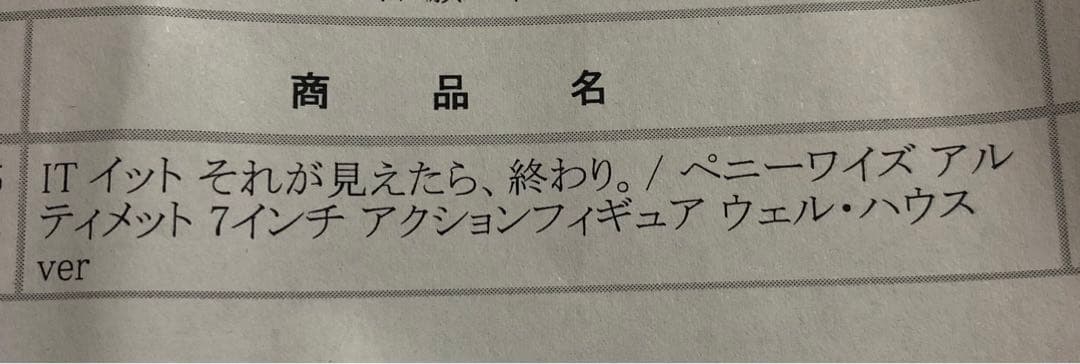 商品名
IT イット それが見えたら、終わり。/ ペニーワイズ アル
ティメット 7インチ アクションフィギュア ウェル・ハウス
ver